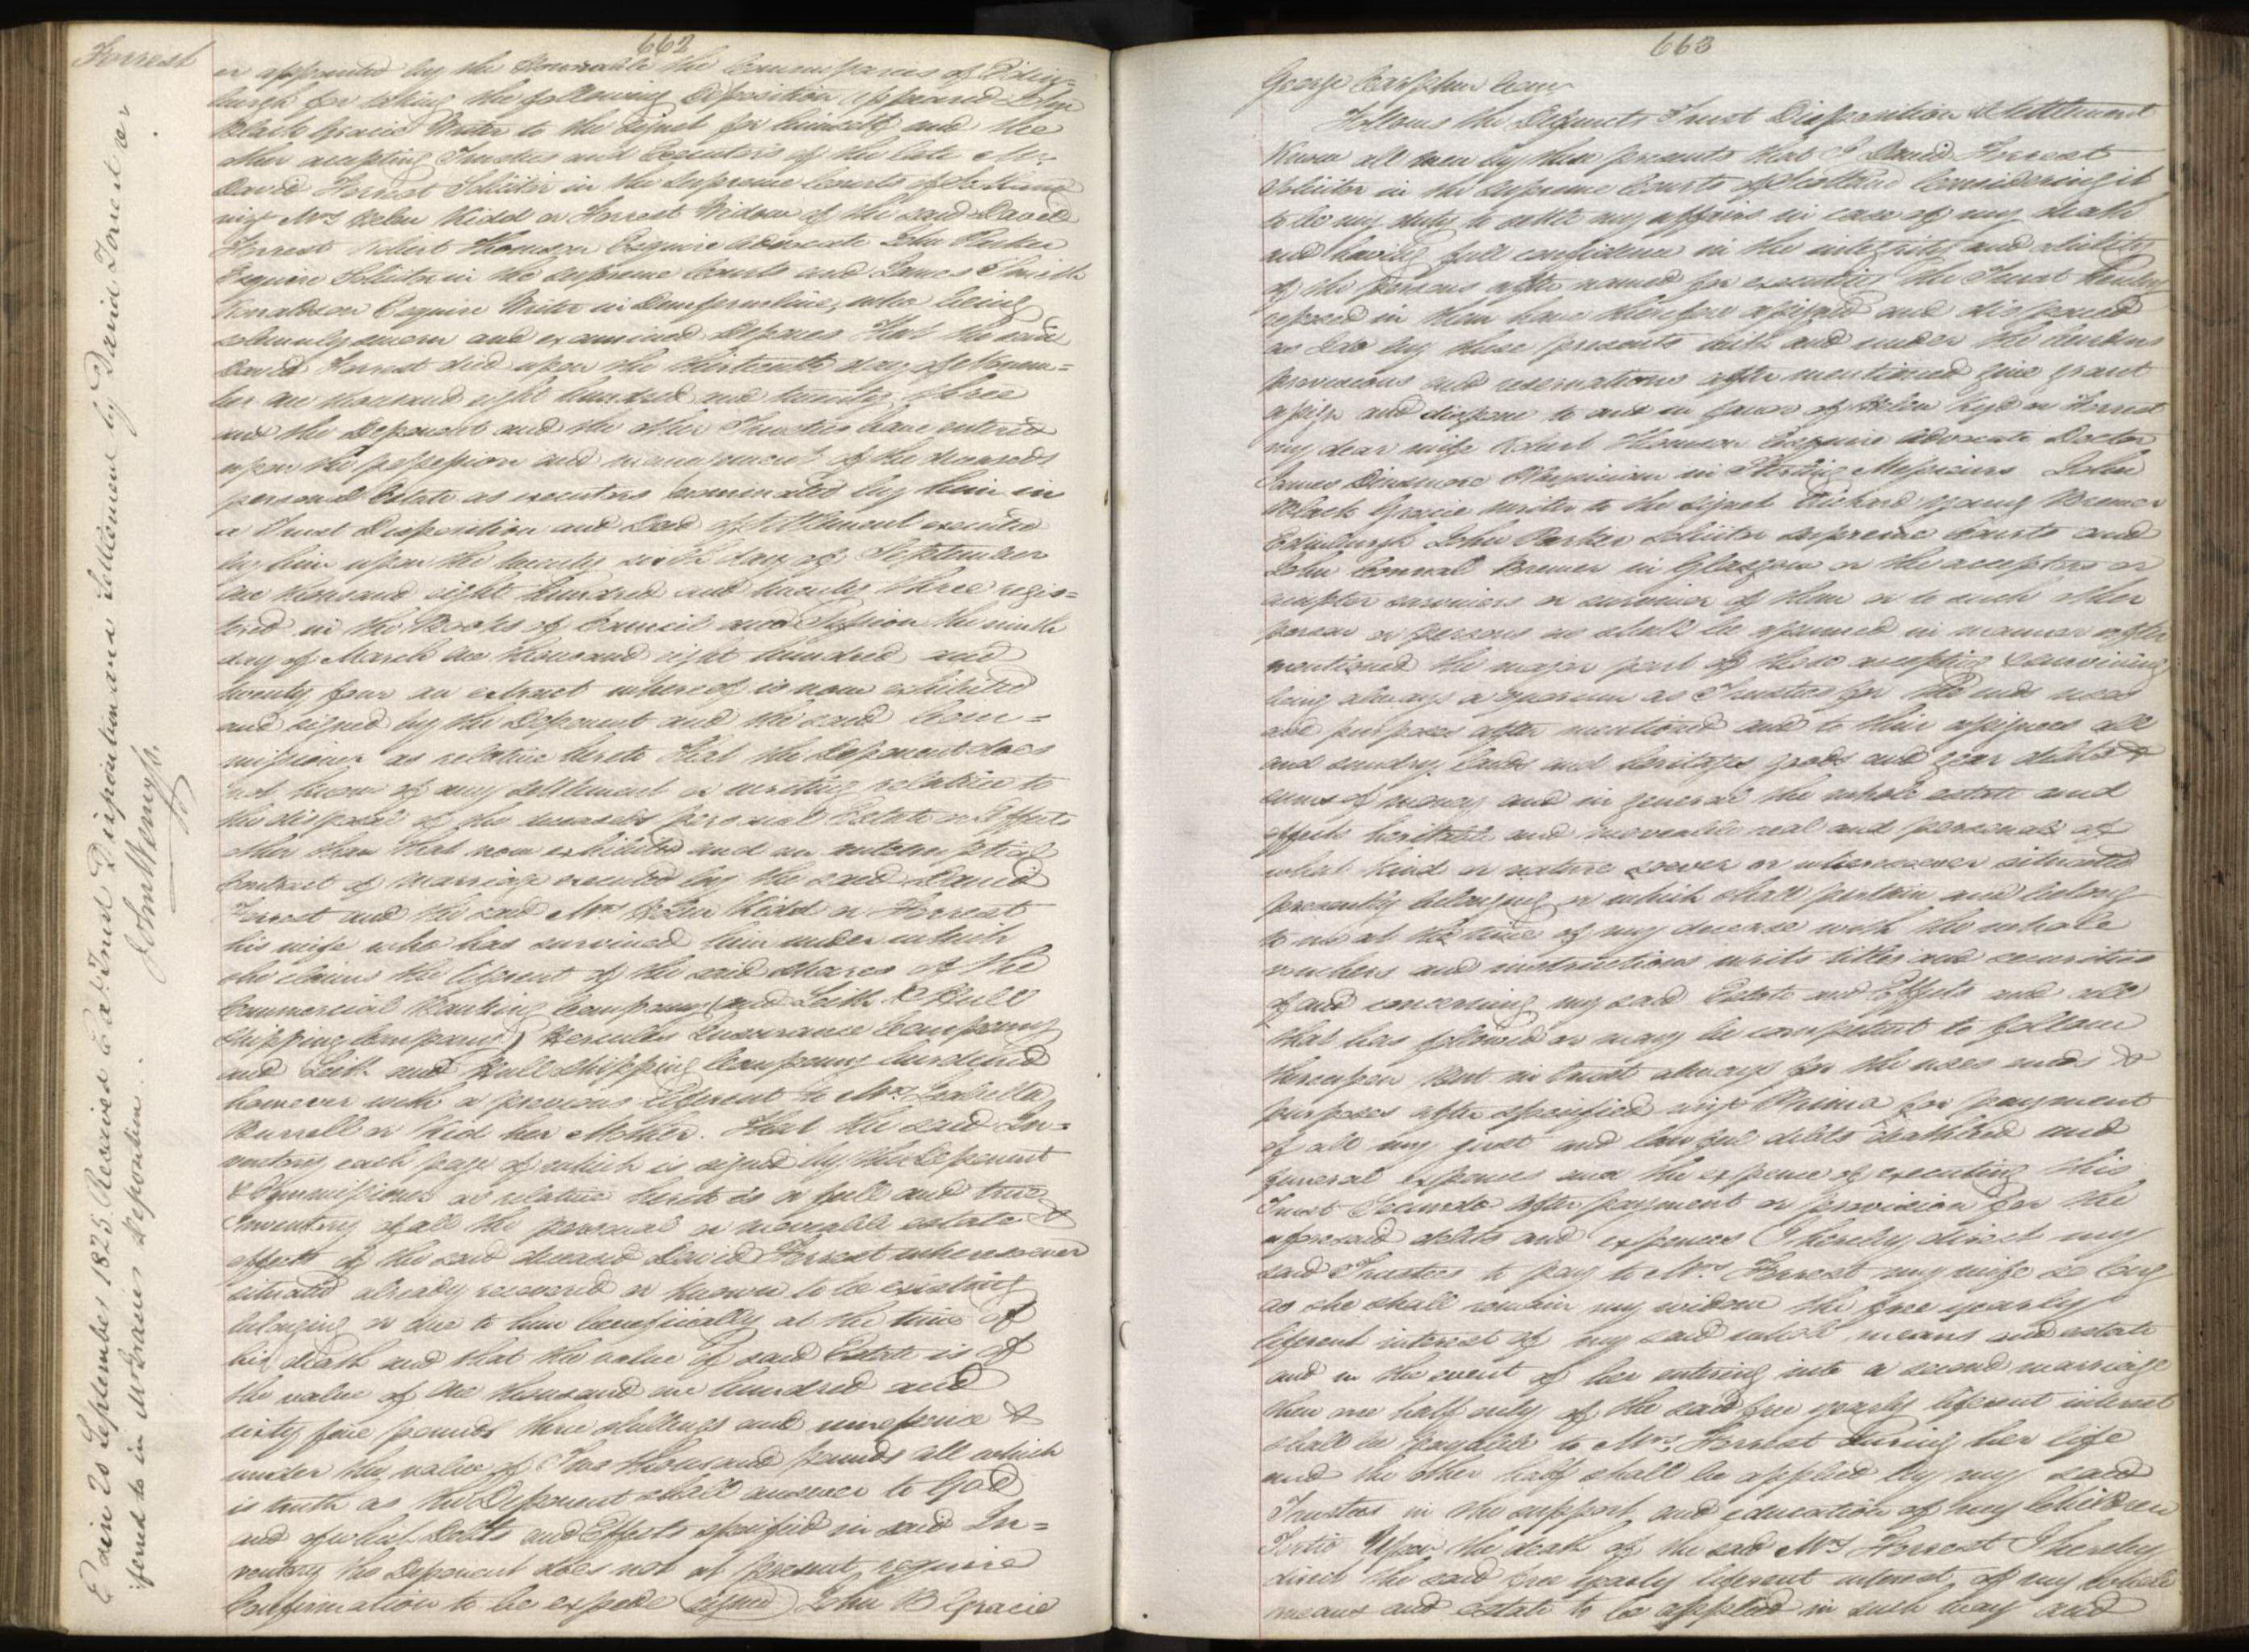 662
Forrest
er appointed by the Honorable the Commissaries of Edin=
burgh for taking the following Deposition appeared John
Black Gracie Writer to the Signet for himself and the
other accepting Trustees and Executors of the late Mr.
David Forrest Solicitor in the Supreme Courts of Scotland
vizt Mrs Helen Kidd or Forrest Widow of the said David
Forrest Robert Thomson Esquire Advocate John Parker
Esquire Solicitor in the Supreme Courts and James Smith
Ronaldson Esquire Writer in Dunfermline, who being
solemnly sworn and examined Depones That the said
David Forrest died upon the thirteenth day of Novem=
ber one thousand eight hundred and twenty three
and the Deponent and the other Trustees have entered
upon the possession and management of the deceaseds
personal Estate as executors nominated by him in
a Trust Disposition and Deed of Settlement executed
by him upon the twenty sixth day of September
one thousand eight hundred and twenty three regis=
tered in the Books of Council and Session the ninth
day of March one thousand eight hundred and
twenty four an extract whereof is now exhibited
and signed by the Deponent and the said Com=
missioner as relative hereto That the Deponent does
not know of any settlement or writing relative to
the disposal of the deceaseds personal Estate or Effects
other than that now exhibited and an antenuptial
Contract of Marriage executed by the said David
Forrest and the said Mrs Helen Kidd or Forrest
his wife who has survived him under which
she claims the liferent of the said shares of the
Commercial Banking Company (and Leith & Hull
Shipping Company) Hercules Insurance Company
and Leith and Hull Shipping Company burdened
however with a previous liferent to Mrs Isabella
Burrell or Kid her Mother. That the said In=
ventory each page of which is signed by the Deponent
& Commissioner as relative hereto is a full and true
Inventory of all the personal or moveable estate &
effects of the said deceased David Forrest wheresoever
situated already recovered or known to be existing
belonging or due to him beneficially at the time of
his death and that the value of said Estate is of
the value of One thousand one hundred and
sixty five pounds three shillings and ninepence &
under the value of Two thousand pounds all which
is truth as the Deponent shall answer to God
and of what Debts and Effects specified in said In=
ventory the Deponent does not at present require
Confirmation to be expede (signed) John B Gracie
Edin 20 September 1825. Received Ext. Trust Disposition and Settlement by David Forrest re
ferred to in Mr Gracies Deposition.
John Wemyss.
663
George Carphin Com
Follows the Defuncts Trust Disposition & Settlement
Know all men by these presents that I David Forrest
Solicitor in the Supreme Courts of Scotland Considering it
to be my duty to settle my affairs in case of my death
and having full confidence in the integrity and ability
of the persons after named for executing the Trust hereby
reposed in them have therefore assigned and disponed
as I do by these presents with and under the burdens
provisions and reservations after mentioned give grant
assign and dispone to and in favor of Helen Kyd or Forrest
my dear wife Robert Thomson Esquire Advocate Doctor
James Dinsmore Physician in Stirling Messieurs John
Black Gracie writer to the signet Richard Young Brewer
Edinburgh John Parker Solicitor Supreme Courts and
John Connal Brewer in Glasgow or the acceptors or
accepter survivors or survivor of them or to such other
person or persons as shall be assumed in manner after
mentioned the major part of those accepting & surviving
being always a quorum as Trustees for the ends uses
and purposes after mentioned and to their assignees all
and sundry lands and heritages goods and gear debts &
sums of money and in general the whole estate and
effects heritable and moveable real and personal of
what kind or nature soever or wheresoever situated
presently belonging or which shall pertain and belong
to me at the time of my decease with the whole
vouchers and instructions writs titles and securities
of and concerning my said Estate and Effects and all
that has followed or may be competent to follow
thereupon But in trust always for the uses ends &
purposes after specified vizt Primo for payment
of all my just and lawful debts deathbed and
funeral expences and the expence of executing this
Trust Secundo After payment or provision for the
aforesaid debts and expences I hereby direct my
said Trustees to pay to Mrs Forrest my wife so long
as she shall remain my widow the free yearly
liferent interest of my said whole means and estate
and in the event of her entering into a second marriage
then one half only of the said free yearly liferent interest
shall be payable to Mrs Forrest during her life
and the other half shall be applied by my said
Trustees in the support and education of my Children
Tertio Upon the death of the said Mrs Forrest I hereby
direct the said free yearly liferent interest of my whole
means and estate to be applied in such way and